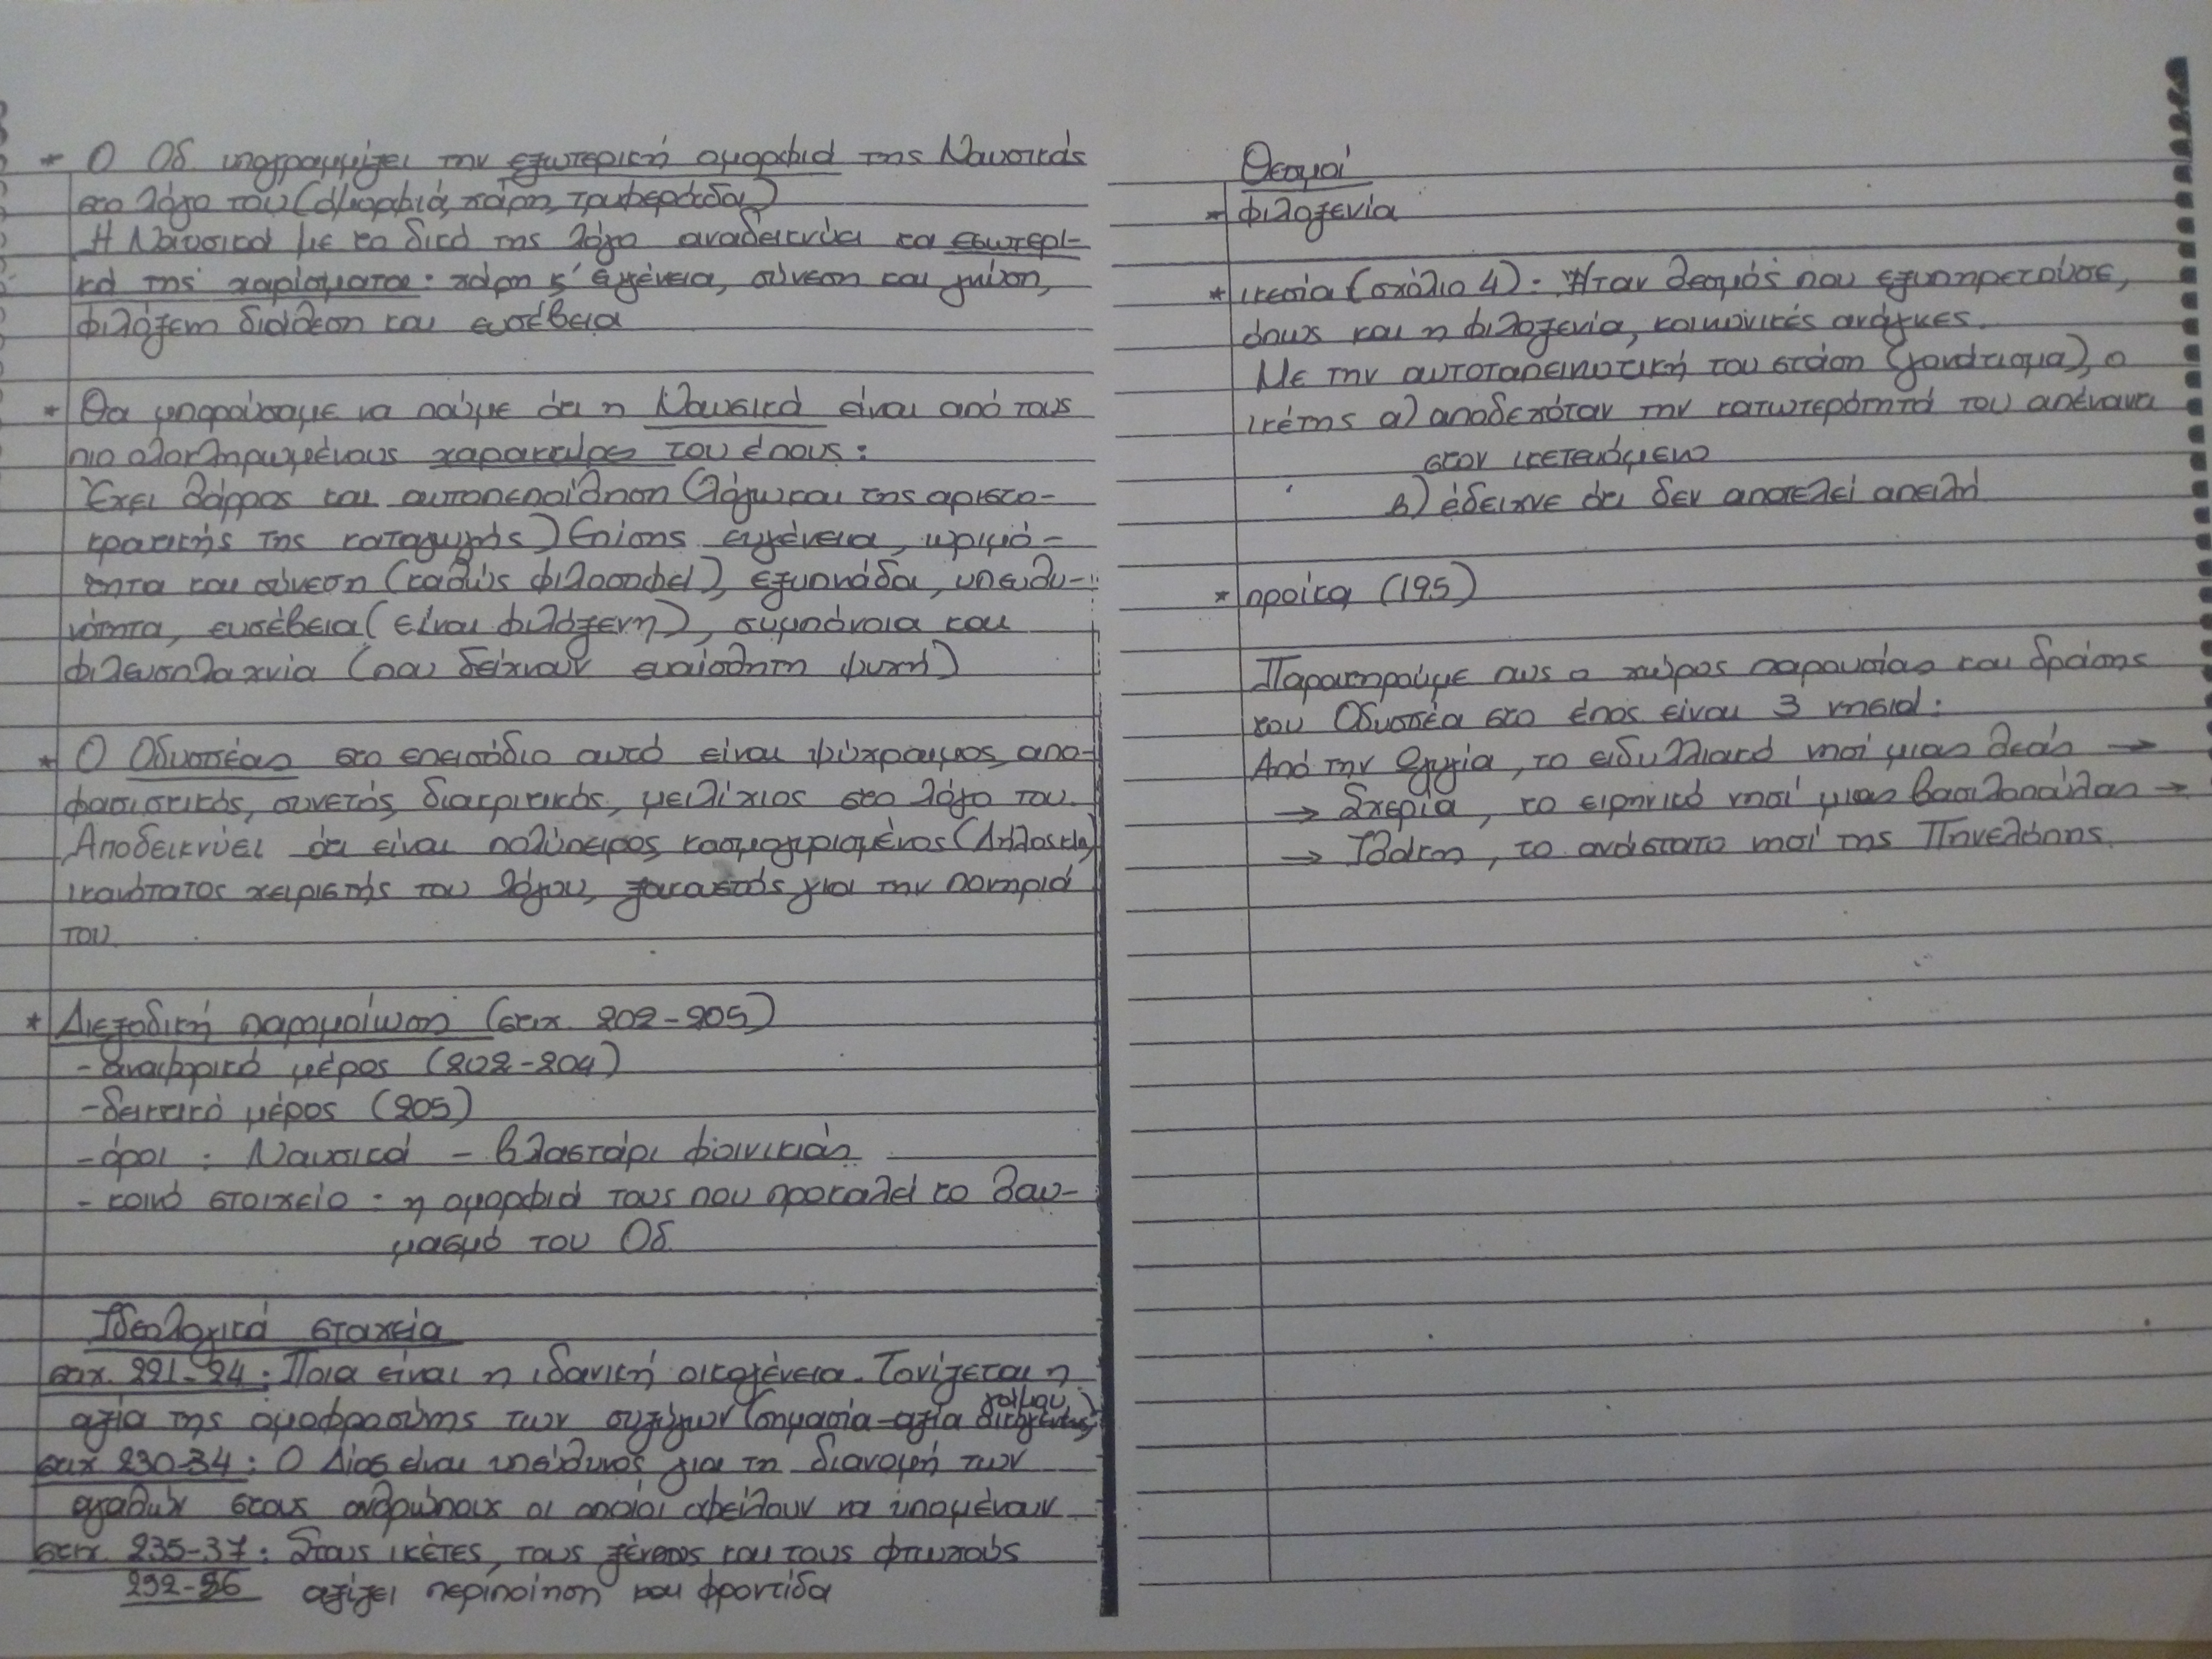 * Ο Οδ. υπογραμμίζει την εξωτερική ομορφιά της Ναυσικάς
στο λόγο του (ομορφιά, χάρη, τρυφεράδα)
Η Ναυσικά με το δικό της λόγο αναδεικνύει τα εσωτερι-
κά της χαρίσματα: χάρη κ' ευγένεια, σύνεση και γνώση,
φιλόξενη διάθεση και ευσέβεια
* Θα μπορούσαμε να πούμε ότι η Ναυσικά είναι από τους
πιο ολοκληρωμένους χαρακτήρες του έπους:
Έχει θάρρος και αυτοπεποίθηση (λόγω και της αριστο-
κρατικής της καταγωγής) Επίσης ευγένεια, ωριμό-
τητα και σύνεση (καθώς φιλοσοφεί), εξυπνάδα, υπευθυ-
νότητα, ευσέβεια (είναι φιλόξενη), συμπόνοια και
φιλευσπλαχνία (που δείχνουν ευαίσθητη ψυχή)
* Ο Οδυσσέας στο επεισόδιο αυτό είναι ψύχραιμος, απο-
φασιστικός, συνετός, διακριτικός, μειλίχιος στο λόγο του.
Αποδεικνύει ότι είναι πολύπειρος, κοσμογυρισμένος (Δήλος κλπ)
ικανότατος χειριστής του λόγου, ξακουστός για την πονηριά
του
* Διεξοδική παρομοίωση (στιχ. 202-205)
- αναφορικό μέρος (202-204)
- δεικτικό μέρος (205)
- όροι : Ναυσικά - βλαστάρι φοινικιάς
- κοινό στοιχείο : η ομορφιά τους που προκαλεί το θαυ-
μασμό του Οδ.
Ιδεολογικά στοιχεία
στιχ. 221-24 : Ποια είναι η ιδανική οικογένεια. Τονίζεται η
αξία της ομοφροσύνης των συζύγων (σημασία-αξία γάμου, οικογένειας)
στιχ 230-34 : Ο Δίας είναι υπεύθυνος για τη διανομή των
αγαθών στους ανθρώπους οι οποίοι οφείλουν να υπομένουν
στιχ. 235-37 : Στους ικέτες, τους ξένους και τους φτωχούς
292-96 αξίζει περιποίηση και φροντίδα
Θεσμοί
* φιλοξενία
* ικεσία (σχόλιο 4) : Ήταν θεσμός που εξυπηρετούσε,
όπως και η φιλοξενία, κοινωνικές ανάγκες.
Με την αυτοταπεινωτική του στάση (γονάτισμα), ο
ικέτης α) αποδεχόταν την κατωτερότητά του απέναντι
στον ικετευόμενο
β) έδειχνε ότι δεν αποτελεί απειλή
* προίκα (195)
Παρατηρούμε πως ο χώρος παρουσίας και δράσης
του Οδυσσέα στο έπος είναι 3 νησιά:
Από την Ωγυγία, το ειδυλλιακό νησί μιας θεάς →
→ Σχερία, το ειρηνικό νησί μιας βασιλοπούλας →
→ Ιθάκη, το ανάστατο νησί της Πηνελόπης.